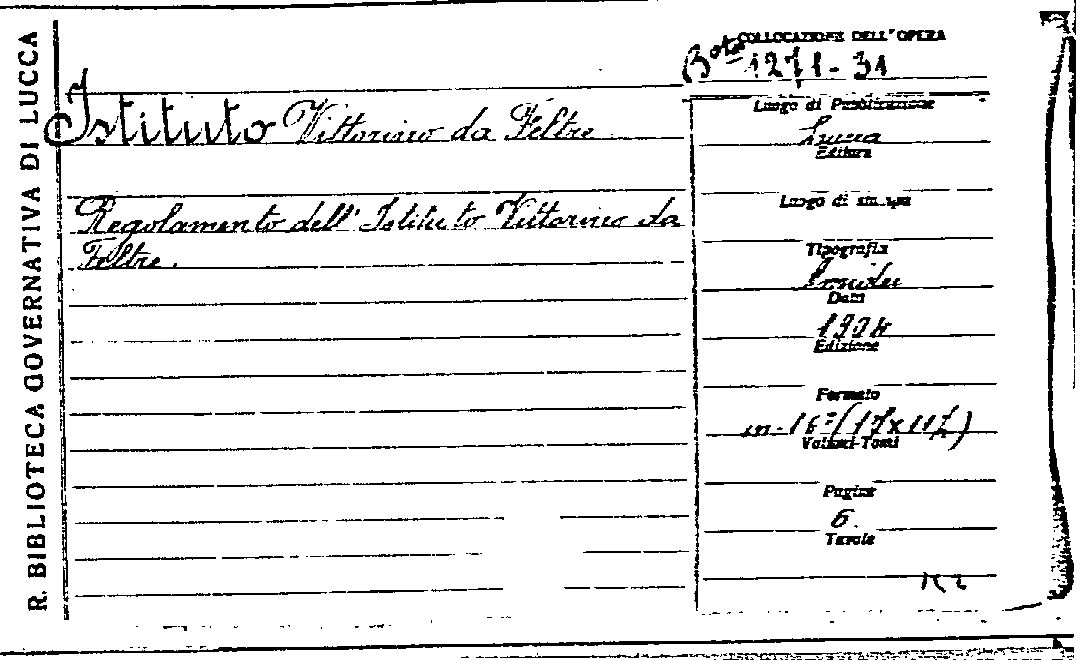 R. BIBLIOTECA GOVERNATIVA DI LUCCA
COLLOCAZIONE DELL'OPERA
1271-31
Istituto Vittorino da Feltre
Regolamento dell' Istituto Vittorino da
Feltre.
Luogo di Pubblicazione
Lucca
Editore
Luogo di stampa
Tipografia
Data
Edizione
Formato
in-16º (17x11½)
Volumi-Tomi
Pagine
6.
Tavole